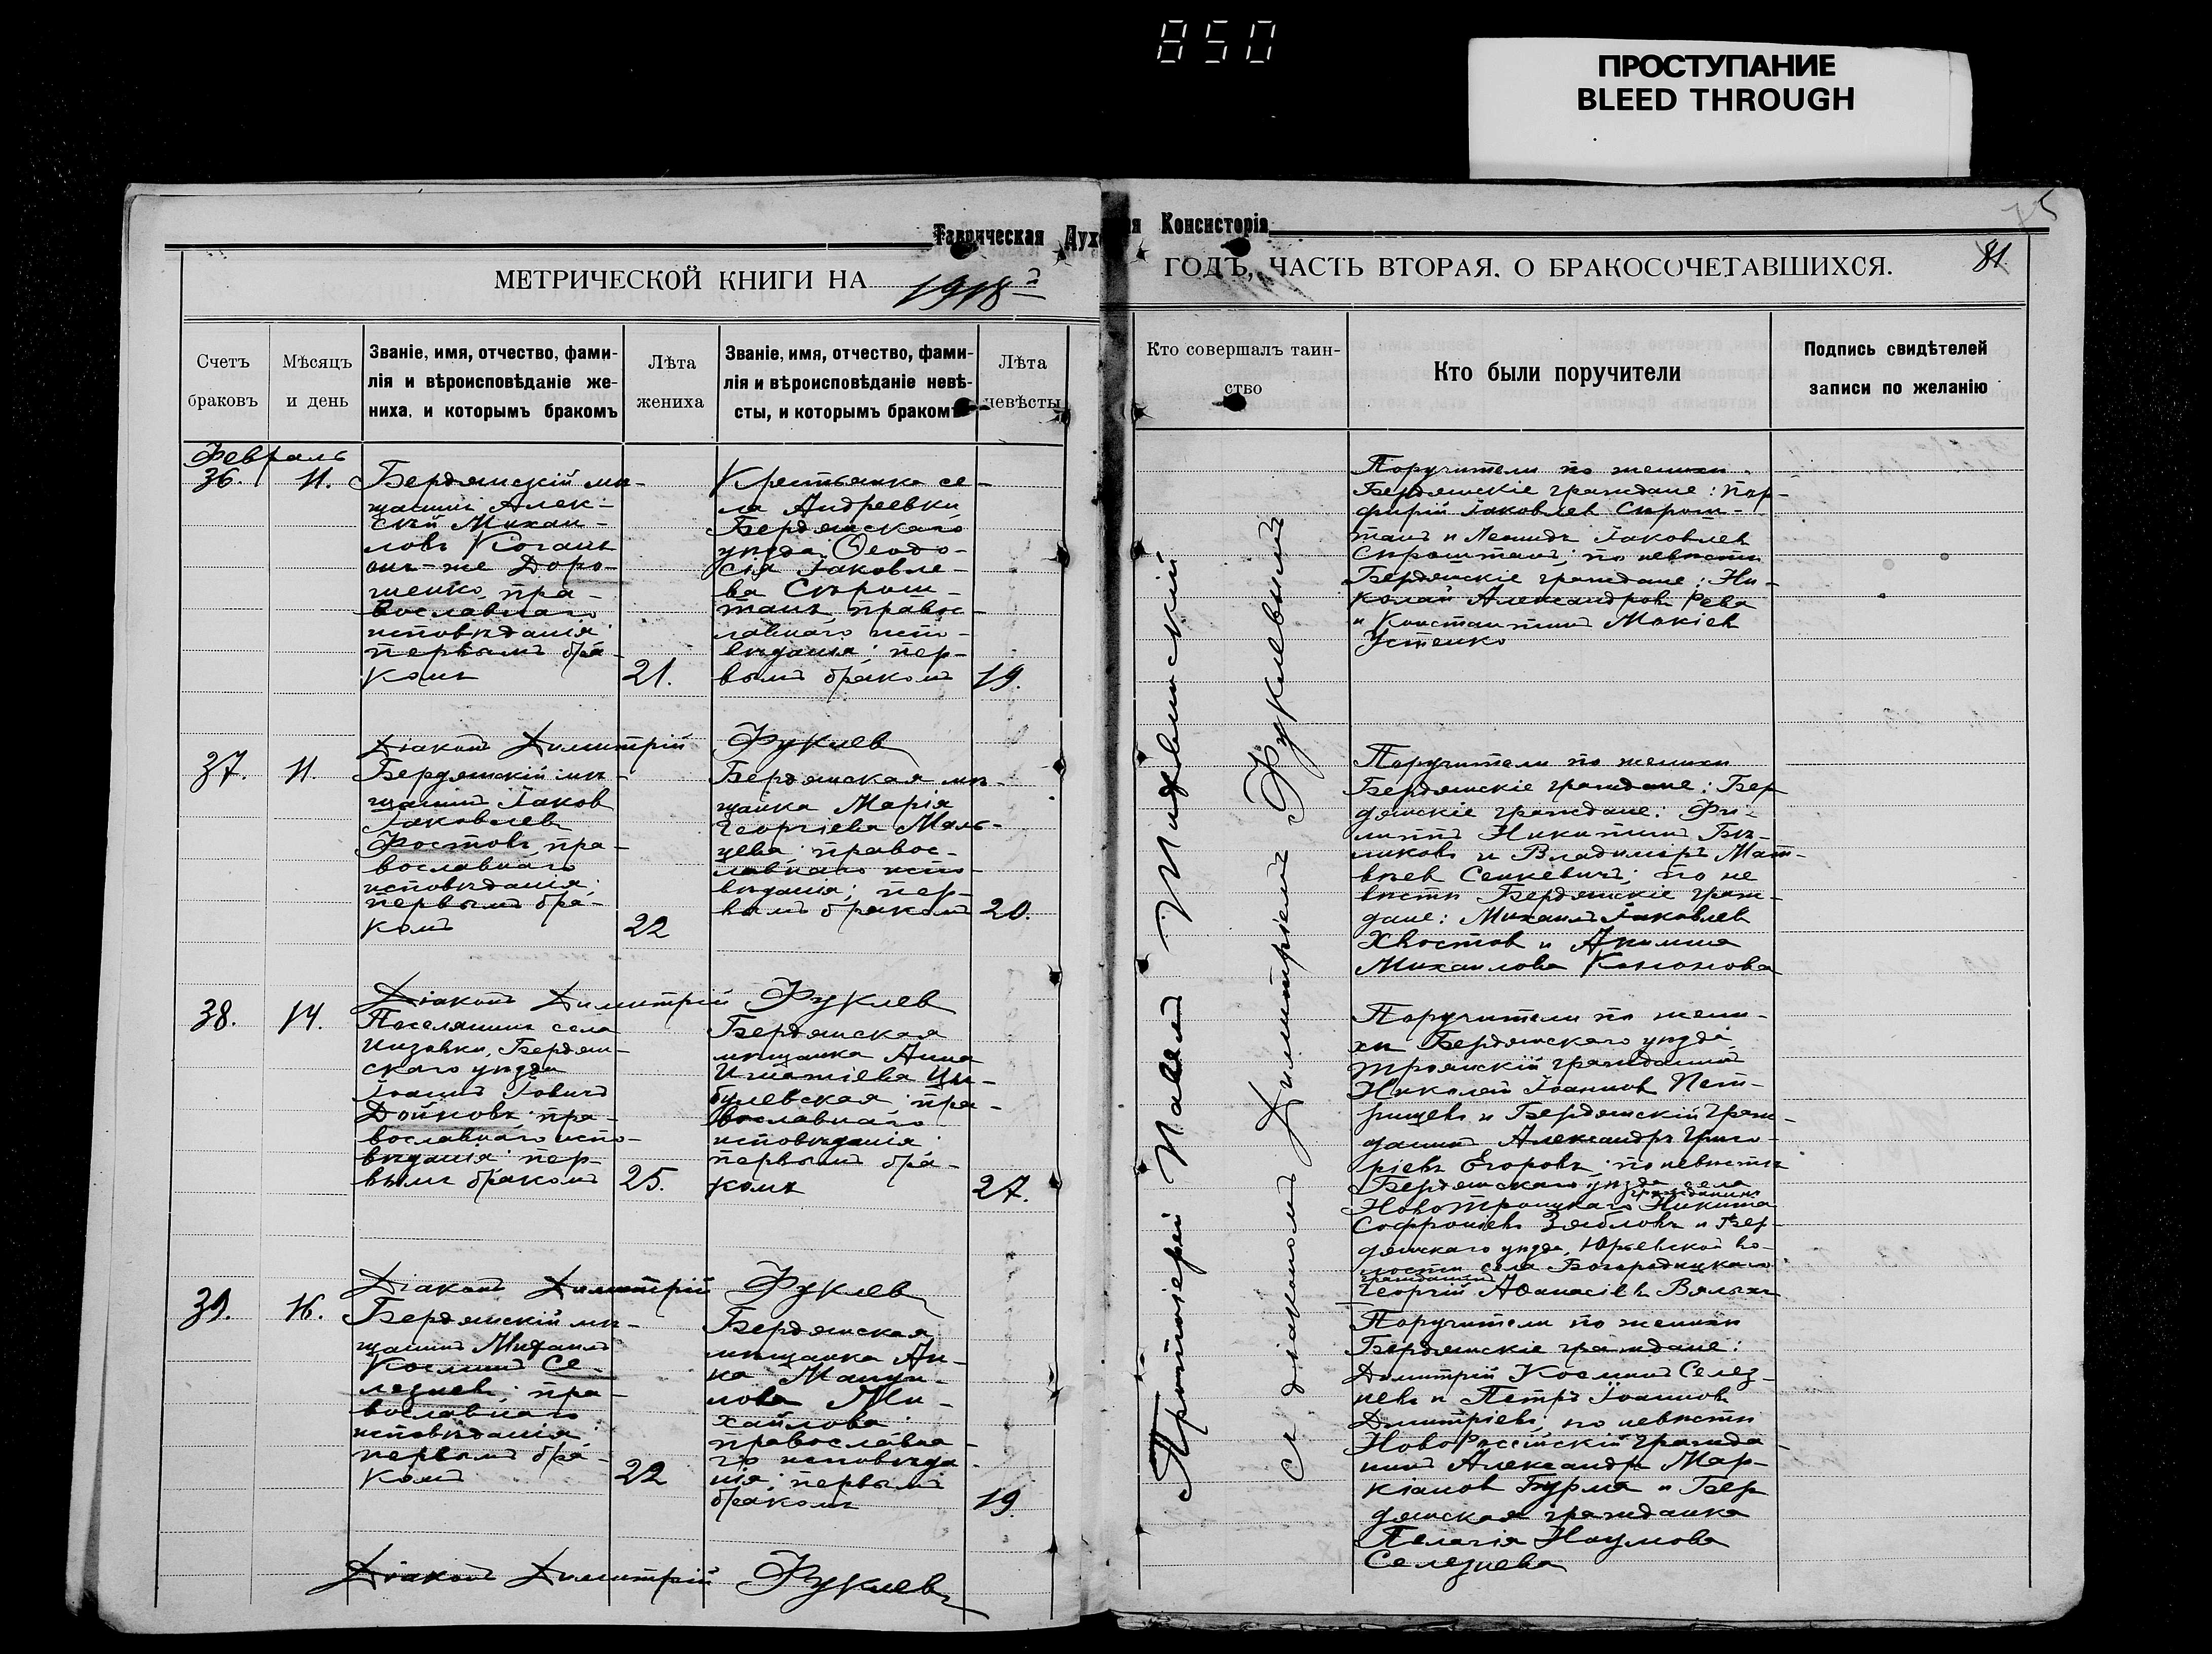 850
ПРОСТУПАНИЕ
BLEED THROUGH
75
Таврическая Духо
я Консисторія
МЕТРИЧЕСКОЙ КНИГИ НА 1918 г
ГОДЪ, ЧАСТЬ ВТОРАЯ, О БРАКОСОЧЕТАВШИХСЯ.
81
Счетъ
браковъ
Мѣсяцъ
и день
Званіе, имя, отчество, фами-
лія и вѣроисповѣданіе же-
ниха, и которымъ бракомъ
Лѣта
жениха
Званіе, имя, отчество, фами-
лія и вѣроисповѣданіе невѣ-
сты, и которымъ бракомъ
Лѣта
невѣсты
Кто совершалъ таин-
ство
Кто были поручители
Подпись свидѣтелей
записи по желанію
Февраль
36.
11.
Бердянскій мѣ-
щанинъ Алек-
сѣй Михаи-
ловъ Коганъ
онъ-же Доро-
шенко, пра-
вославнаго
исповѣданія
первымъ бра-
комъ
21.
Крестьянка се-
ла Андреевки
Бердянскаго
уѣзда Ѳеодо-
сія Іаковле-
ва Сѣрош-
танъ, правос-
лавнаго испо-
вѣданія; пер-
вымъ бракомъ
19.
Поручители по женихѣ
Бердянскіе граждане: Пор-
фирій Іаковлев Сѣрош-
танъ и Леонидъ Іаковлев
Сѣроштанъ; по невѣстѣ
Бердянскіе граждане: Ни-
колай Александров Рева
и Константинъ Мокіев
Устенко
Діаконъ Димитрій Фуклев
37.
11.
Бердянскій мѣ-
щанинъ Іаков
Іаковлев
Фостовъ, пра-
вославнаго
исповѣданія;
первымъ бра-
комъ
22
Бердянская мѣ-
щанка Марія
Георгіева Маль-
цева; правос-
лавнаго испо-
вѣданія; пер-
вымъ бракомъ
20.
Поручители по женихѣ
Бердянскіе граждане: Бер
дянскіе граждане: Фи-
липпъ Никитинъ Бѣ-
ликовъ и Владиміръ Мат-
вѣев Сенкевичъ; по не
вѣстѣ Бердянскіе граж-
дане: Михаилъ Іаковлев
Хвостов и Акилина
Михаилова Кононова
Діаконъ Димитрій Фуклев
38.
14.
Поселянинъ села
Инзовки, Бердян-
скаго уѣзда
Іоаннъ Іовичъ
Дойновъ; пра-
вославнаго испо-
вѣданія; пер-
вымъ бракомъ
25.
Бердянская
мѣщанка Анна
Игнатіева Цы-
булевская; пра-
вославнаго
исповѣданія
первымъ бра-
комъ
27.
Поручители по жени-
хѣ Бердянскаго уѣзда
Троянскій гражданинъ
Николай Іоаннов Пет-
рищевъ и Бердянскій граж-
данинъ Александръ Григо-
ріевъ Егоровъ; по невѣстѣ
Бердянскаго уѣзда села
НовоТроицкаго гражданинъ Никита
Софроніевъ Зябловъ и Бер-
дянскаго уѣзда, Юрьевской во-
лости села Богородицкаго
гражданинъ
Георгій Аѳанасіевъ Вялыхъ
Діаконъ Димитрій Фуклев
39.
16.
Бердянскій мѣ-
щанинъ Михаилъ
Косминъ Се-
лезнев; пра-
вославнаго
исповѣданія;
первымъ бра-
комъ
22
Бердянская
мѣщанка Ан-
на Мануи-
лова Ми-
хайлова
православна-
го исповѣда
нія; первымъ
бракомъ
19.
Поручители по женихѣ
Бердянскіе граждане:
Димитрій Косминъ Селез-
невъ и Петръ Іоаннов
Димитріевъ; по невѣстѣ
НовоРоссійскій гражда-
нинъ Александръ Мар-
кіанов Бурма и Бер
дянская гражданка
Пелагія Наумова
Селезнева
Діаконъ Димитрій Фуклевъ
Протоіерей Павелъ
съ діакономъ Димитріемъ Фуклевымъ